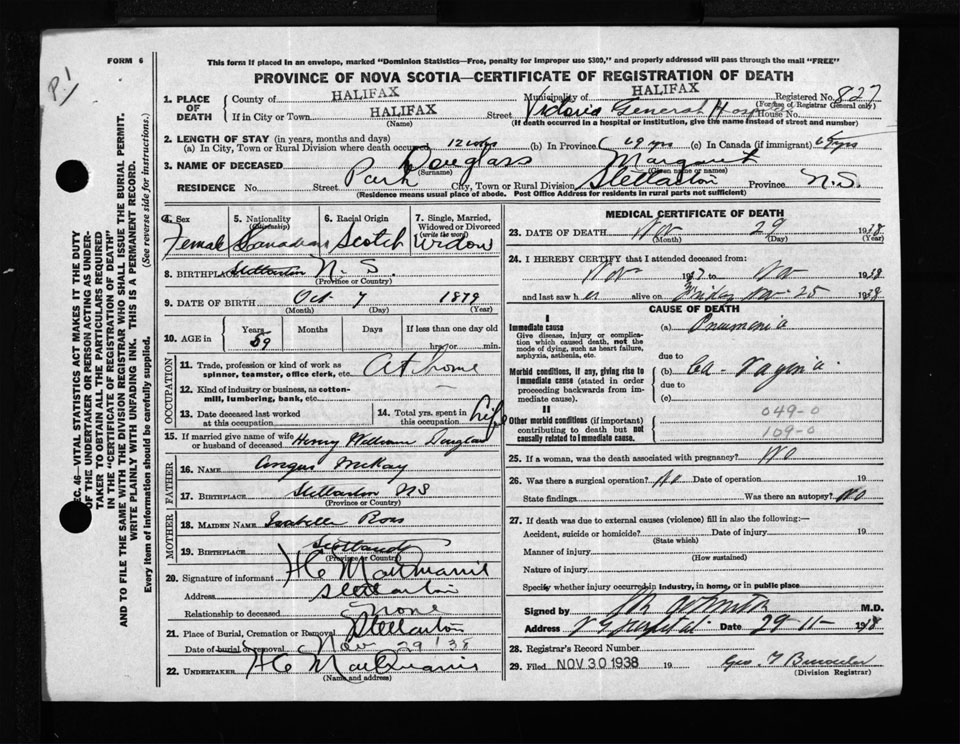 P.1
FORM 6
This form if placed in an envelope, marked "Dominion Statistics—Free, penalty for improper use $300," and properly addressed will pass through the mail "FREE"
PROVINCE OF NOVA SCOTIA—CERTIFICATE OF REGISTRATION OF DEATH
1. PLACE OF DEATH
County of HALIFAX Municipality of HALIFAX Registered No. 827
(For use of Registrar General only)
If in City or Town HALIFAX Street Victoria General House No.
(Name) (If death occurred in a hospital or institution, give the name instead of street and number)
2. LENGTH OF STAY (in years, months and days)
(a) In City, Town or Rural Division where death occurred 12 (b) In Province 69 yrs (c) In Canada (if immigrant)
3. NAME OF DECEASED Douglass Margaret
(Surname) (Given name or names)
RESIDENCE No. Street Park City, Town or Rural Division Stellarton Province N.S.
(Residence means usual place of abode. Post Office Address for residents in rural parts not sufficient)
4. Sex Female
5. Nationality (Citizenship) Canadian
6. Racial Origin Scotch
7. Single, Married, Widowed or Divorced (write the word) Widow
8. BIRTHPLACE Stellarton N.S.
(Province or Country)
9. DATE OF BIRTH Oct 7 1879
(Month) (Day) (Year)
10. AGE in Years 59 Months Days If less than one day old
hrs. or min.
OCCUPATION
11. Trade, profession or kind of work as spinner, teamster, office clerk, etc. At home
12. Kind of industry or business, as cotton-mill, lumbering, bank, etc.
13. Date deceased last worked at this occupation
14. Total yrs. spent in this occupation Life
15. If married give name of wife or husband of deceased Henry William Douglas
FATHER
16. NAME Angus McKay
17. BIRTHPLACE Stellarton NS
(Province or Country)
MOTHER
18. MAIDEN NAME Isabella Ross
19. BIRTHPLACE Scotland
(Province or Country)
20. Signature of informant H C
Address Stellarton
Relationship to deceased none
21. Place of Burial, Cremation or Removal Stellarton
Date of burial or removal Nov 29 '38
22. UNDERTAKER H C
(Name and address)
MEDICAL CERTIFICATE OF DEATH
23. DATE OF DEATH Nov 29 1938
(Month) (Day) (Year)
24. I HEREBY CERTIFY that I attended deceased from:
Nov 1937 to Nov 1938
and last saw her alive on Friday Nov 25 1938
CAUSE OF DEATH
I
Immediate cause
Give disease, injury or complication which caused death, not the mode of dying, such as heart failure, asphyxia, asthenia, etc.
(a) Pneumonia
due to
Morbid conditions, if any, giving rise to immediate cause (stated in order proceeding backwards from immediate cause).
(b) Ca - Vagina
due to
(c)
II
Other morbid conditions (if important) contributing to death but not causally related to immediate cause.
049-0
109-0
25. If a woman, was the death associated with pregnancy? No
26. Was there a surgical operation? No Date of operation 19
State findings Was there an autopsy? No
27. If death was due to external causes (violence) fill in also the following:—
Accident, suicide or homicide? Date of injury 19
(State which)
Manner of injury
(How sustained)
Nature of injury
Specify whether injury occurred in industry, in home, or in public place
Signed by M.D.
Address V G Hospital Date 29-11-1938
28. Registrar's Record Number
29. Filed NOV 30 1938 19 Geo. T
(Division Registrar)
SEC. 46—VITAL STATISTICS ACT MAKES IT THE DUTY
OF THE UNDERTAKER OR PERSON ACTING AS UNDERTAKER TO OBTAIN ALL THE PARTICULARS REQUIRED
IN THE "CERTIFICATE OF REGISTRATION OF DEATH"
AND TO FILE THE SAME WITH THE DIVISION REGISTRAR WHO SHALL ISSUE THE BURIAL PERMIT.
WRITE PLAINLY WITH UNFADING INK. THIS IS A PERMANENT RECORD.
Every item of information should be carefully supplied. (See reverse side for instructions.)